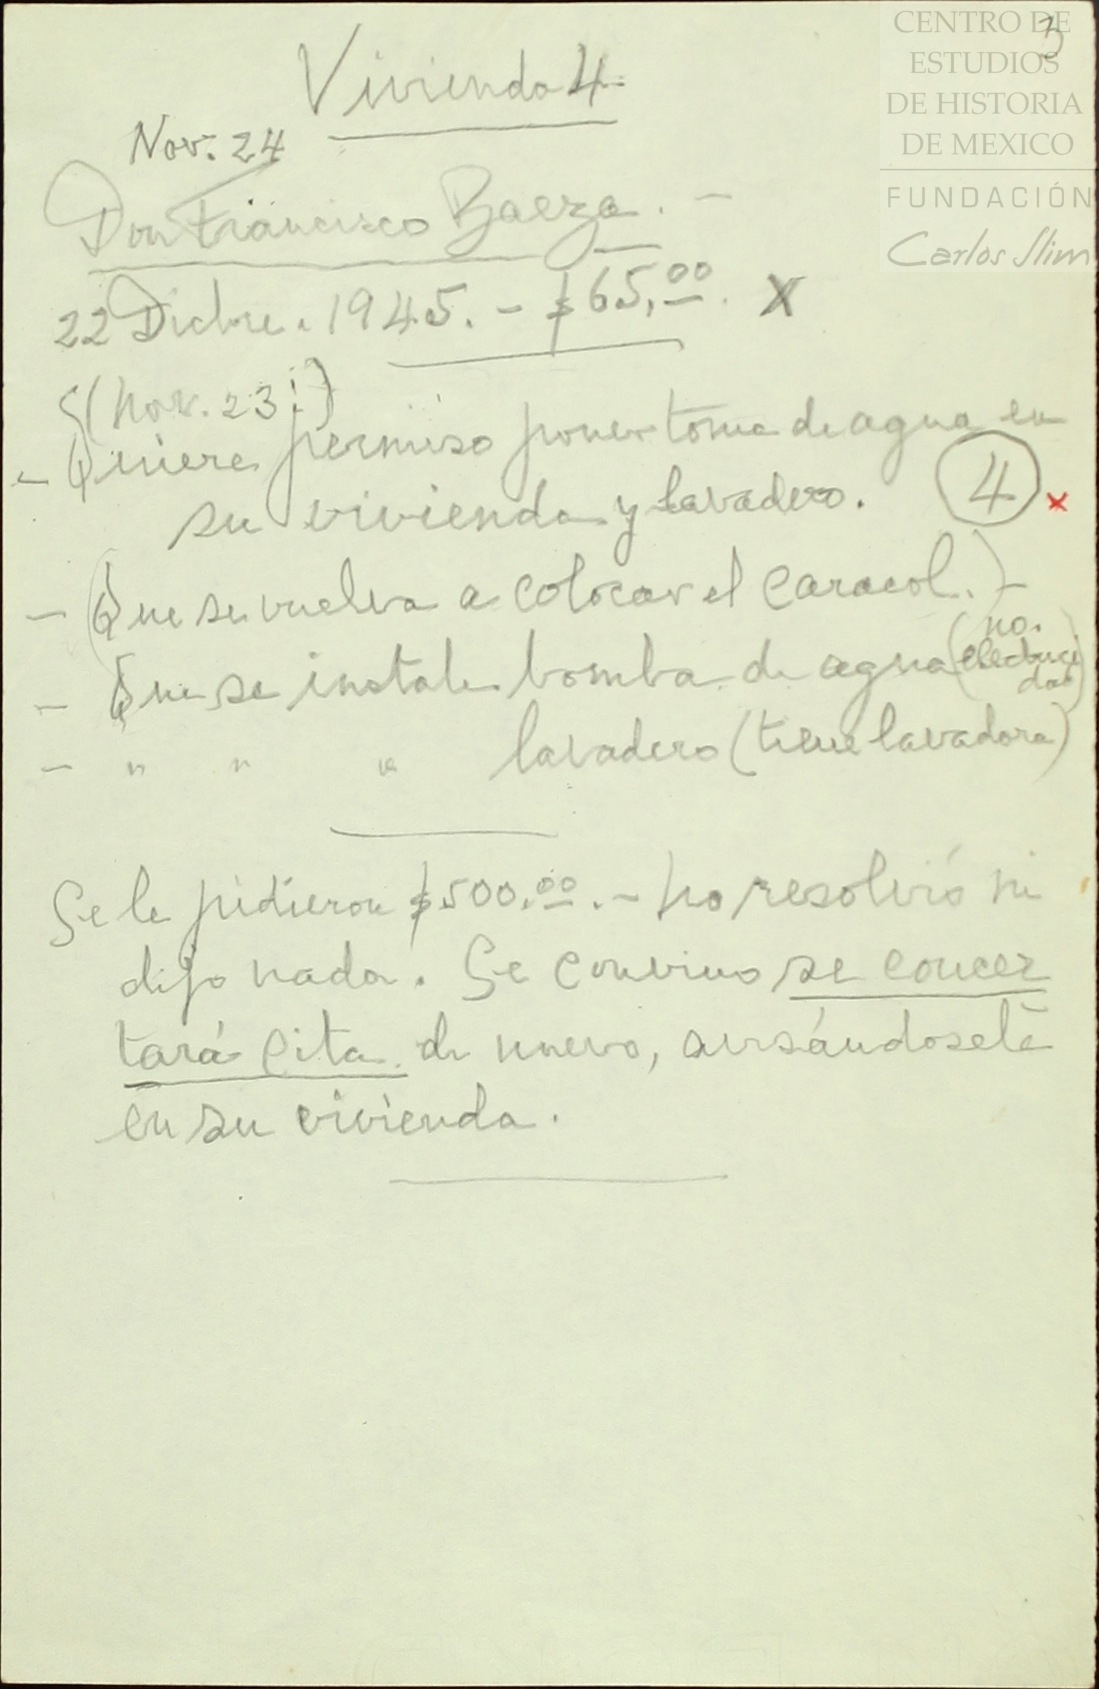 CENTRO DE
ESTUDIOS
DE HISTORIA
DE MEXICO
FUNDACIÓN
Carlos Slim
3
Vivienda 4.
Nov. 24
Don Francisco Baeza. -
22 Dicbre. 1945. - $65.00. X
(Nov. 23:)
- Quiere permiso poner toma de agua en
su vivienda y lavadero. 4 x
- (Que se vuelva a colocar el caracol.) -
(no.
- Que se instale bomba de agua electrici
dad)
- " " " lavadero (tiene lavadora)
Se le pidieron $500.00. - No resolvió ni
dijo nada. Se convino se concer
tará cita de nuevo, avisándosele
en su vivienda.